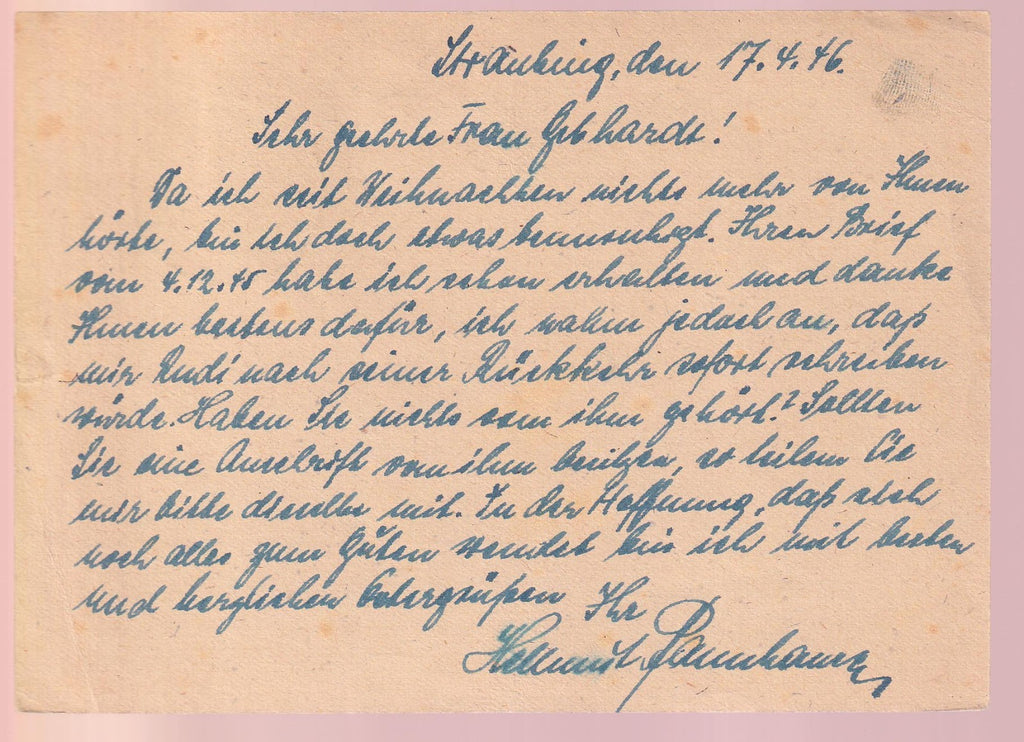 Straubing, den 17.4.46.
Sehr geehrte Frau Gebhardt!
Da ich seit Weihnachten nichts mehr von Ihnen
hörte, bin ich doch etwas beunruhigt. Ihren Brief
vom 4.12.45 habe ich schon erhalten und danke
Ihnen bestens dafür, ich nahm jedoch an, daß
mir Rudi nach seiner Rückkehr sofort schreiben
würde. Haben Sie nichts von ihm gehört? Sollten
Sie eine Anschrift von ihm besitzen, so teilen Sie
mir bitte dieselbe mit. In der Hoffnung, daß sich
noch alles zum Guten wendet bin ich mit besten
und herzlichen Ostergrüßen Ihr
Hellmut